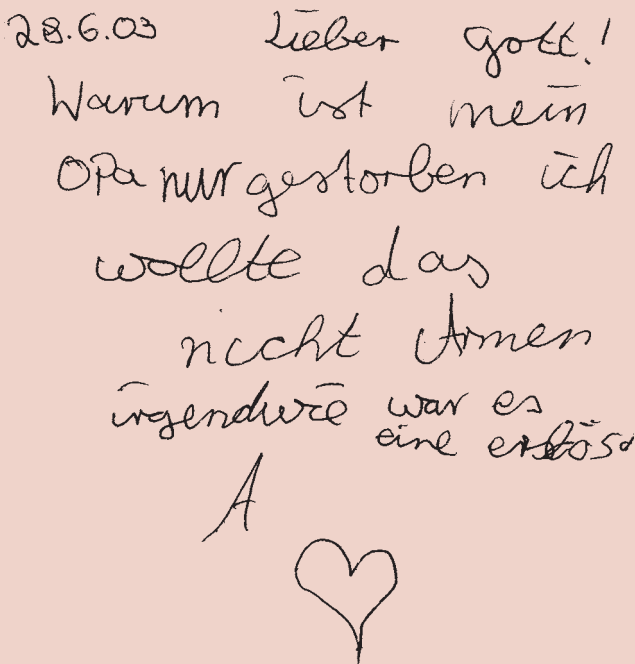 28.6.03 Lieber Gott!
Warum ist mein
Opa nur gestorben ich
wollte das
nicht Armen
irgendwie war es
eine
A